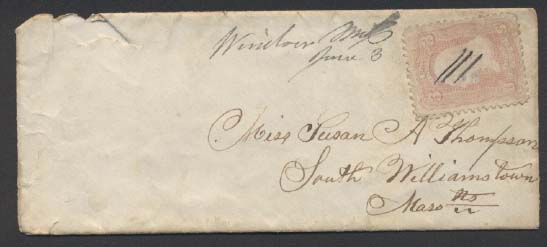 Windsor Ms
June 3
Miss Susan A Thompson
South Williamstown
Mass